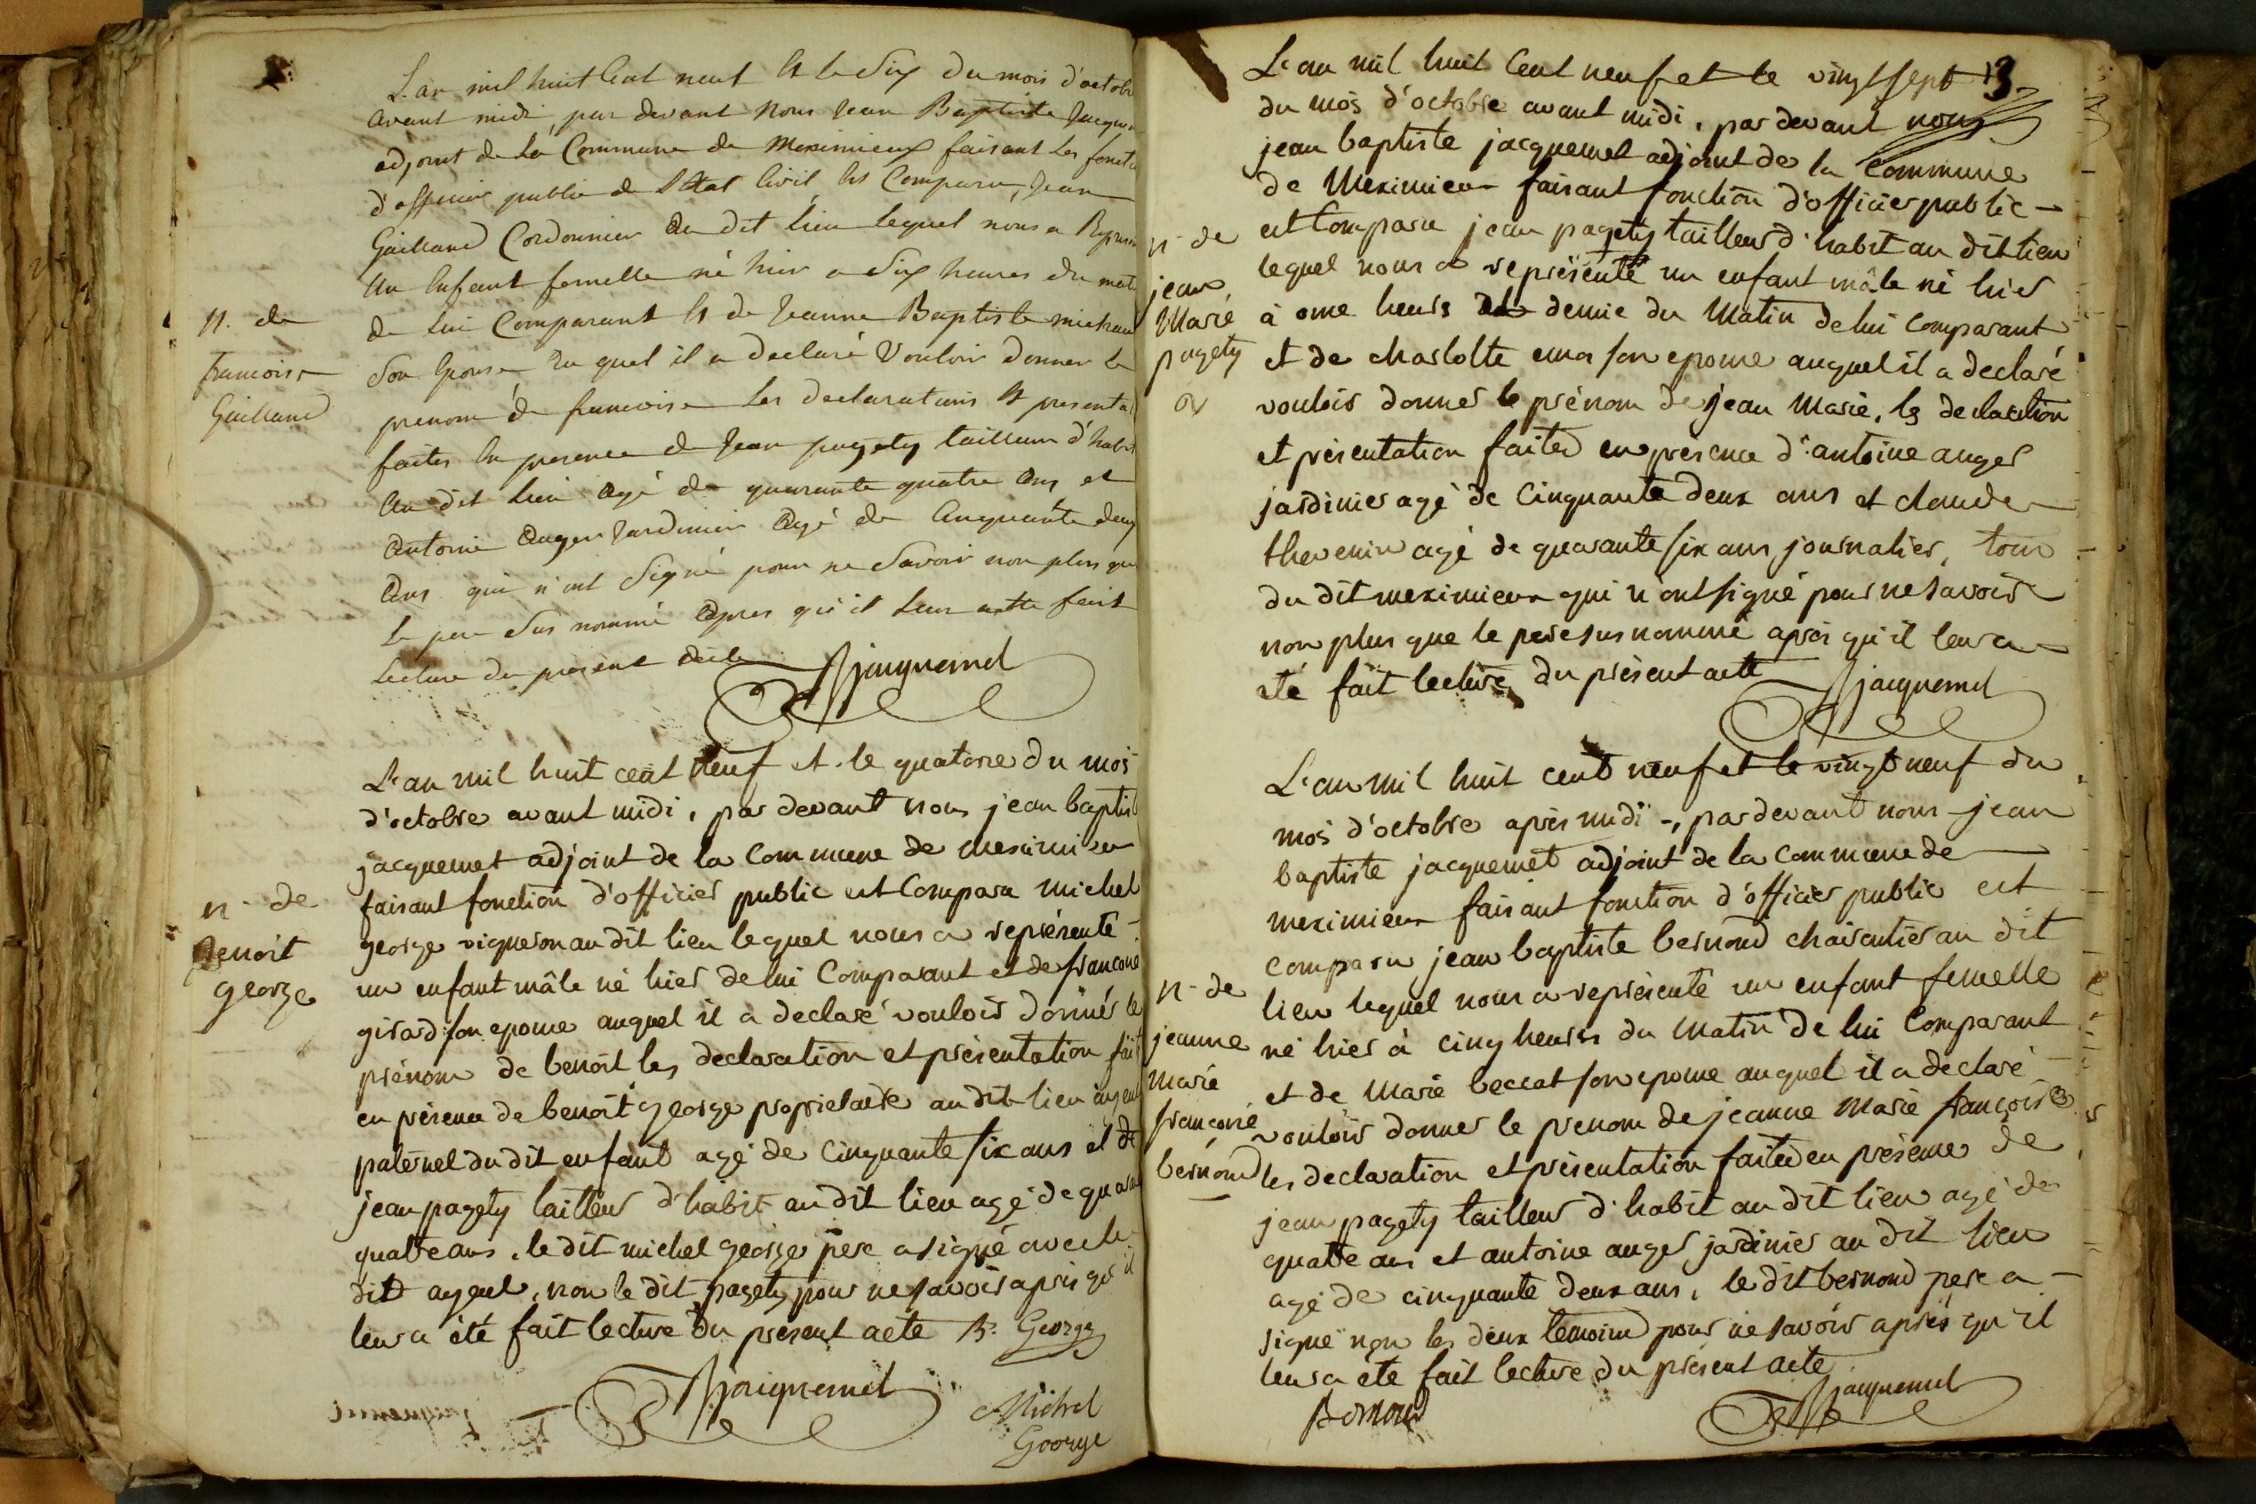 L'an mil huit Cent neuf Et le Six Du mois d'octob
avant midi, par devant Nous Jean Baptiste Jacque
adjoint de La Commune de Meximieux faisant Les foncti
d'officier public de l'Etat Civil, Est Comparu, Jean
Gailland Cordonnier au dit Lieu lequel nous a Represen
Un Enfant femelle né hier a Six heures du mat
de Lui Comparant Et de Jeanne Baptiste
Son Epouse au quel il a declaré Vouloir donner Le
prenom de francoise Les declarations Et presenta
faites En presence de Jean pagety tailleur d'habit
Au dit Lieu Agé de quarante quatre Ans et
Antoine Auger Jardinier Agé de Cinquante deux
Ans qui n'ont Signé pour ne Savoir non plus que
Le pere Sus nommé Apres qu'il Leur a été fait
Lecture du present Acte
Jacquemet
N. de
francoise
Gailland
L'an mil huit cent neuf et le quatorze du mois
d'octobre avant midi, par devant nous jean baptist
jacquemet adjoint de la Commune de meximieux
faisant fonction d'officier public est Comparu michel
george vigneron au dit lieu lequel nous a représenté
un enfant mâle né hier de lui Comparant et de francoise
girard son epouse auquel il a declaré vouloir donner le
prénom de benoit les declaration et présentation fait
en présence de benoit george proprietaire au dit lieu ayeul
paternel du dit enfant agé de cinquante six ans et de
jean pagety tailleur d'habit au dit lieu agé de quaran
quatre ans, le dit michel george pere a signé avec le
dit ayeul, non le dit pagety pour ne savoir après qu'il
leur a été fait lecture du présent acte B. George
Jacquemet
Michel
George
n. de
Benoit
george
13
L'an mil huit Cent neuf et le vingt sept
du mois d'octobre avant midi, par devant nous
jean baptiste jacquemet adjoint de la Commune
de Meximieux faisant fonction d'officier public
est Comparu jean pagety tailleur d'habit au dit lieu
lequel nous a représenté un enfant mâle né hier
à onze heurs demie du Matin de lui comparant
et de charlotte son epouse auquel il a declaré
vouloir donner le prénom de jean Marie, les declaration
et présentation faites en présence d'antoine auger
jardinier agé de Cinquante deux ans et claude
thevenin agé de quarante six ans journalier, tous
du dit meximieux qui n'ont signé pour ne savoir
non plus que le pere sus nommé après qu'il leur a
eté fait lecture du présent acte
Jacquemet
n. de
jean
Marie
pagety
L'an mil huit cent neuf et le vingt neuf du
mois d'octobre après midi, par devant nous jean
baptiste jacquemet adjoint de la commune de
meximieux faisant fonction d'officier public est
comparu jean baptiste bernond chaircutier au dit
lieu lequel nous a représenté un enfant femelle
né hier à cinq heures du Matin de lui Comparant
et de Marie beccat son epouse auquel il a declaré
vouloir donner le prenom de jeanne Marie françoise
les declaration et présentation faites en présence de
jean pagety tailleur d'habit au dit lieu agé de
quatre ans et antoine auger jardinier au dit lieu
agé de cinquante deux ans, le dit bernond pere a
signé non les deux temoins pour ne savoir après qu'il
leur a été fait lecture du présent acte
Bernond
Jacquemet
n. de
jeanne
Marie
françoise
bernond